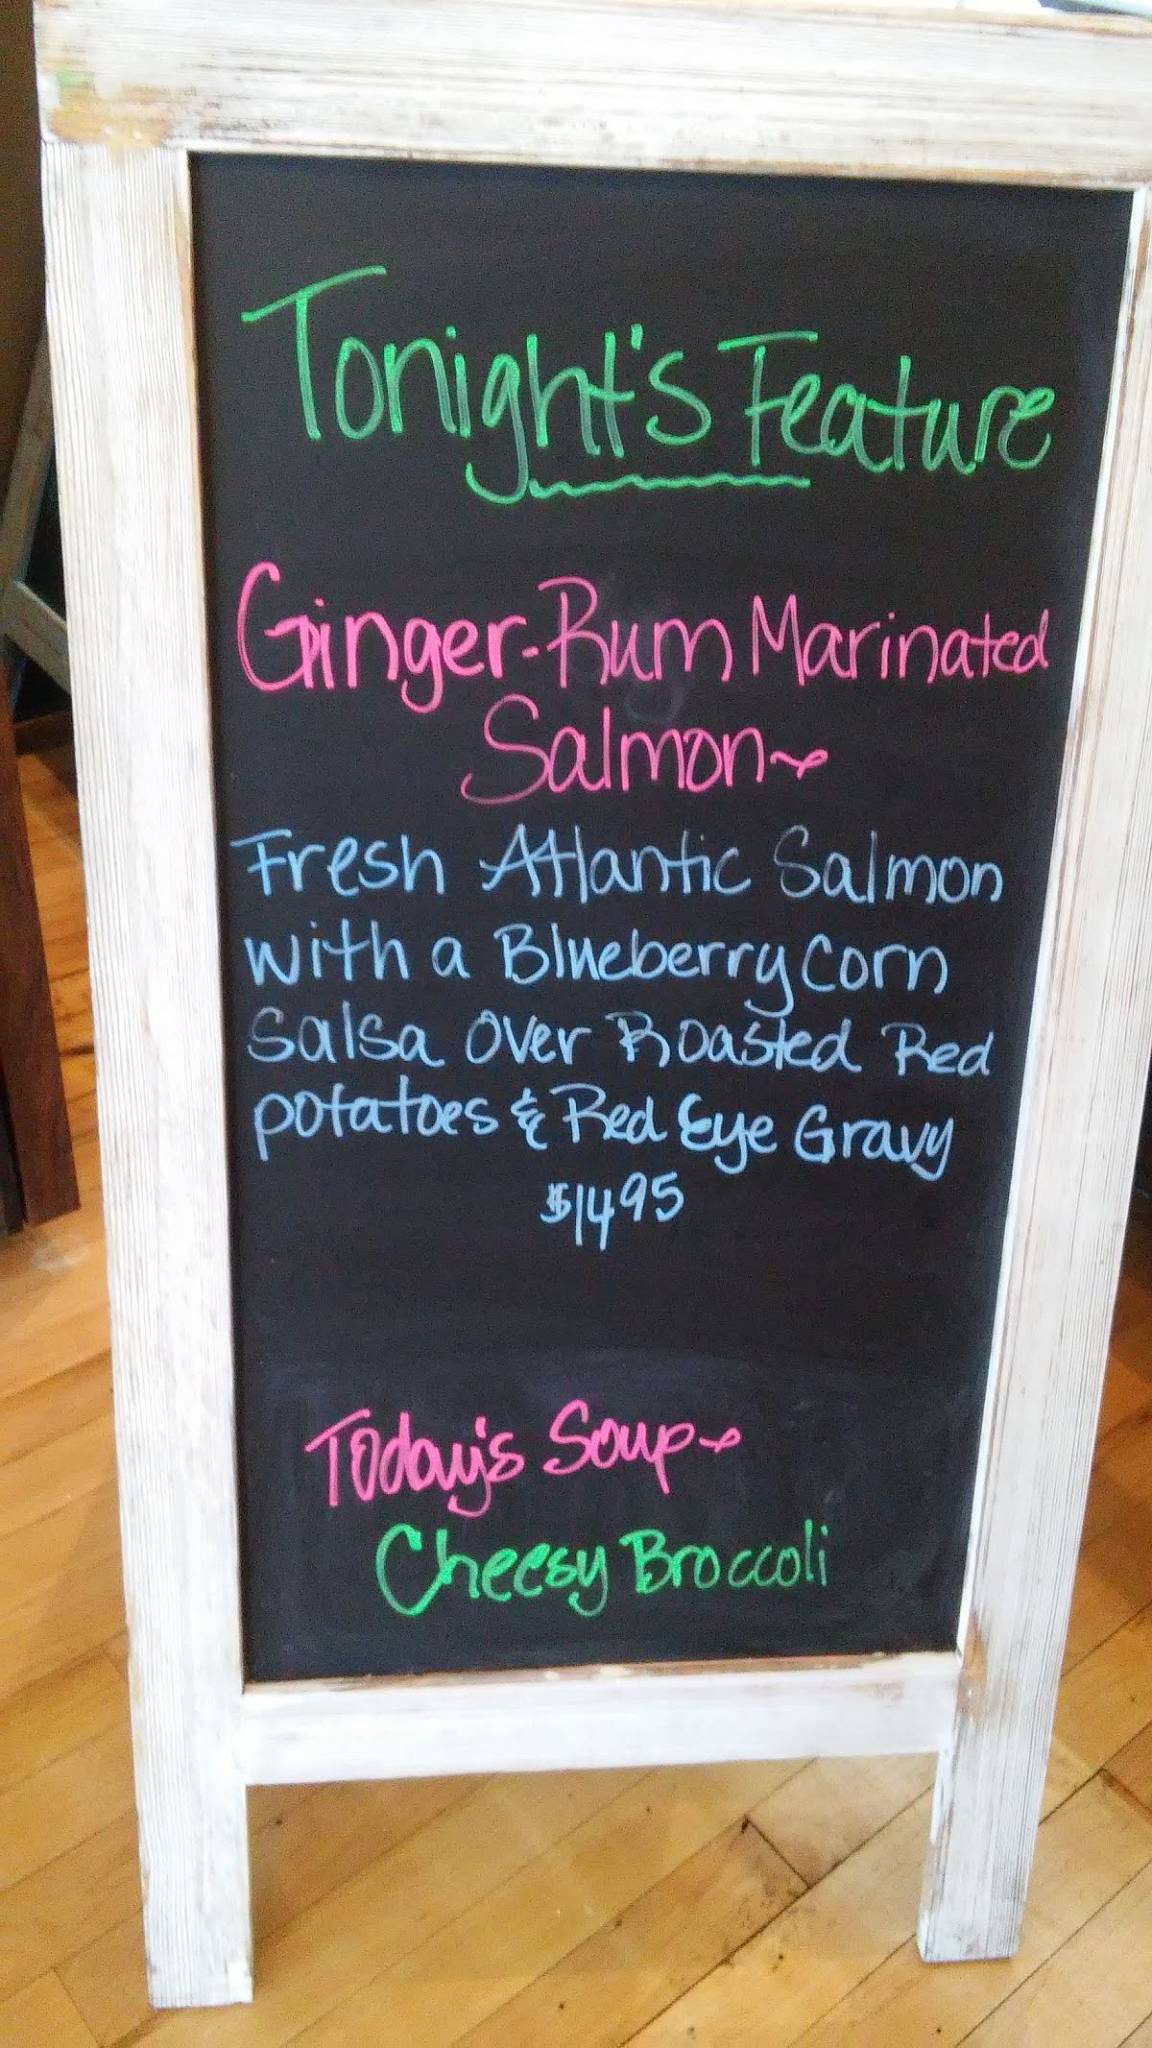 Tonight's Feature
Ginger-Rum Marinated
Salmon~
Fresh Atlantic Salmon
with a Blueberry Corn
Salsa over Roasted Red
potatoes & Red Eye Gravy
$1495
Today's Soup~
Cheesy Broccoli